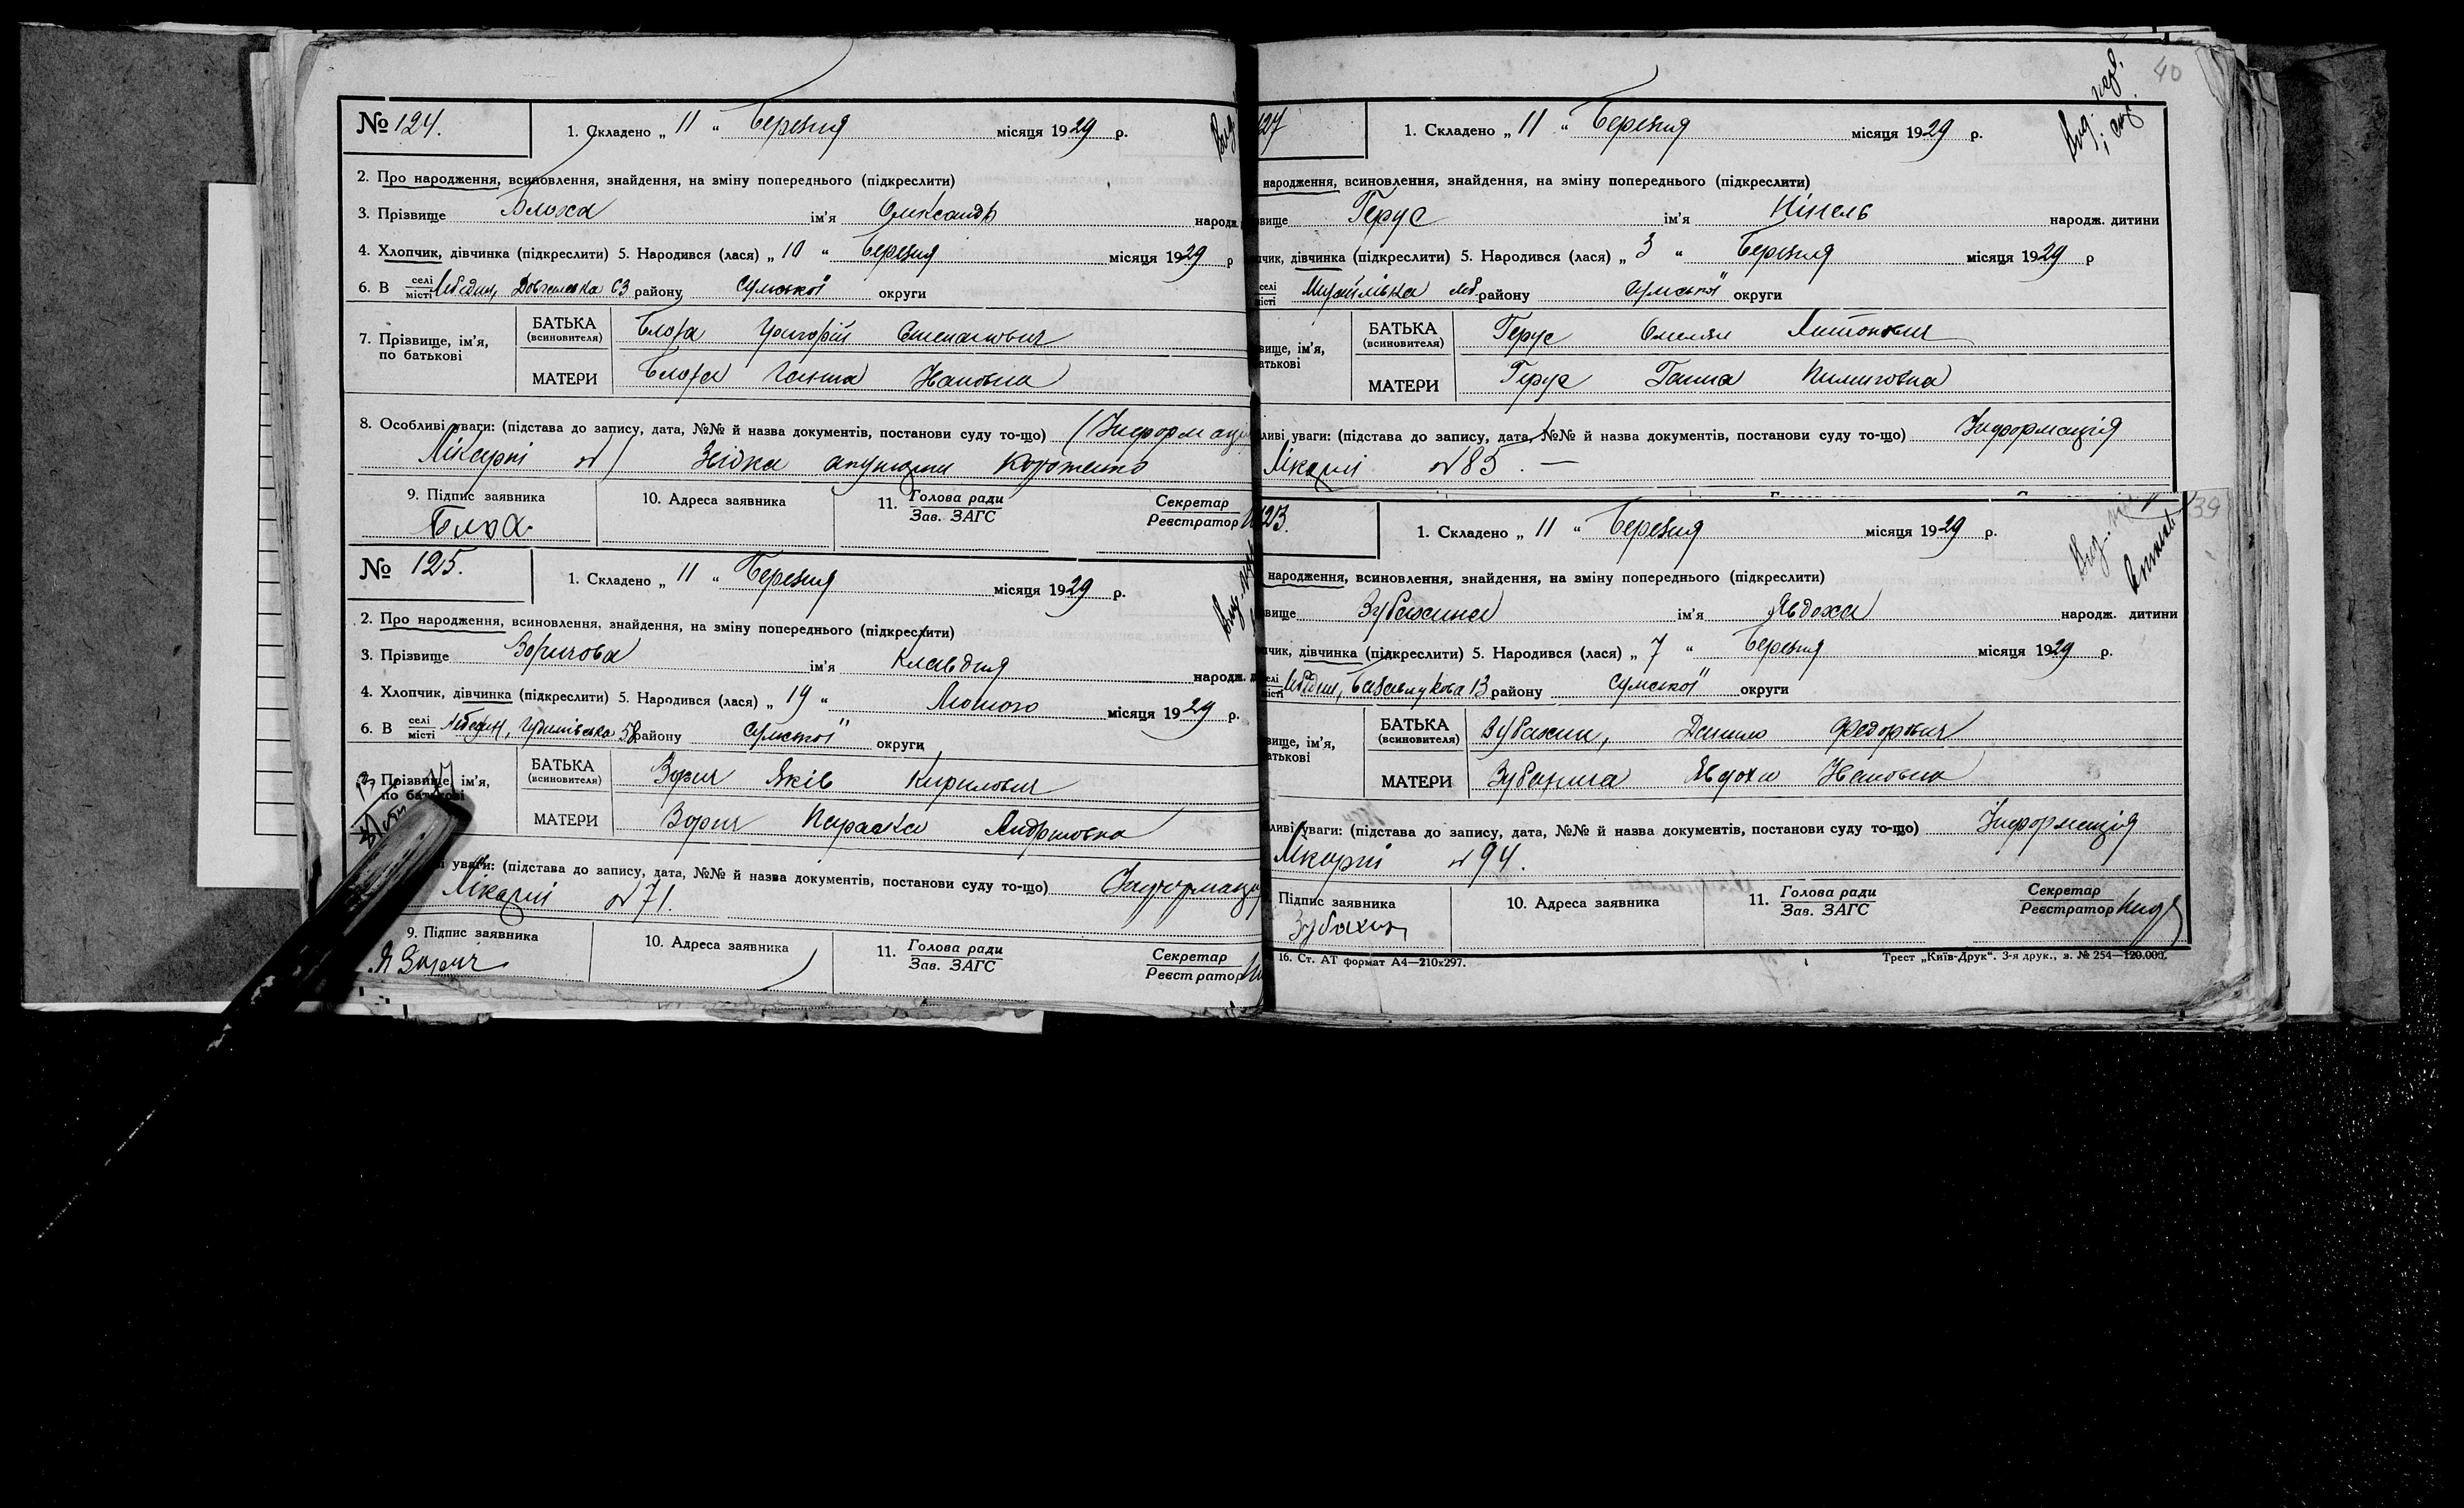 № 124.
1. Складено „ 11 “ Березня місяця 1929 р.
2. Про народження, всиновлення, знайдення, на зміну попереднього (підкреслити)
3. Прізвище Блоха ім'я Олександр народж.
4. Хлопчик, дівчинка (підкреслити) 5. Народився (лася) „ 10 “ Березня місяця 1929 р
6. В селі місті Лебедин, 63 району Сумської округи
7. Прізвище, ім'я, по батькові
БАТЬКА (всиновителя) Блоха Григорій Степанович
МАТЕРИ Блоха Ганна Івановна
8. Особливі уваги: (підстава до запису, дата, №№ й назва документів, постанови суду то-що) (Інформац
Лікарні №) Звідка акушерки
9. Підпис заявника
10. Адреса заявника
11. Голова ради
Зав. ЗАГС
Секретар
Реєстратор
Блоха
№ 125.
1. Складено „ 11 “ Березня місяця 1929 р.
2. Про народження, всиновлення, знайдення, на зміну попереднього (підкреслити)
3. Прізвище Зоричова ім'я Клавдия народж.
4. Хлопчик, дівчинка (підкреслити) 5. Народився (лася) „ 19 “ Лютого місяця 1929 р.
6. В селі місті Лебедин, 58 району Сумської округи
Прізвище, ім'я, по батькові
БАТЬКА (всиновителя) Зорич Яків Кирилович
МАТЕРИ Зорич Параска Андріївна
уваги: (підстава до запису, дата, №№ й назва документів, постанови суду то-що) Інформаці
Лікарні № 71.
9. Підпис заявника
10. Адреса заявника
11. Голова ради
Зав. ЗАГС
Секретар
Реєстратор
Я Зорич
40
127
1. Складено „ 11 “ Березня місяця 1929 р.
народження, всиновлення, знайдення, на зміну попереднього (підкреслити)
вище Герус ім'я Нінель народж. дитини
пчик, дівчинка (підкреслити) 5. Народився (лася) „ 3 “ Березня місяця 1929 р
селі місті Михайлівка Леб. району Сумської округи
вище, ім'я, атькові
БАТЬКА (всиновителя) Герус Омелян Антонович
МАТЕРИ Герус Ганна Пилиповна
ливі уваги: (підстава до запису, дата, №№ й назва документів, постанови суду то-що) Інформація
Лікарні № 85. —
39
123.
1. Складено „ 11 “ Березня місяця 1929 р.
народження, всиновлення, знайдення, на зміну попереднього (підкреслити)
вище Зубахина ім'я Явдоха народж. дитини
пчик, дівчинка (підкреслити) 5. Народився (лася) „ 7 “ Березня місяця 1929 р.
селі місті Лебедин, 13 району Сумської округи
вище, ім'я, атькові
БАТЬКА (всиновителя) Зубахин, Данило Федорович
МАТЕРИ Зубахина Явдоха Івановна
ливі уваги: (підстава до запису, дата, №№ й назва документів, постанови суду то-що) Інформація
Лікарні № 94.
Підпис заявника
10. Адреса заявника
11. Голова ради
Зав. ЗАГС
Секретар
Реєстратор
Зубахин
16. Ст. АТ формат А4—210х297.
Трест „Київ-Друк“. 3-я друк., з. № 254—120.000.